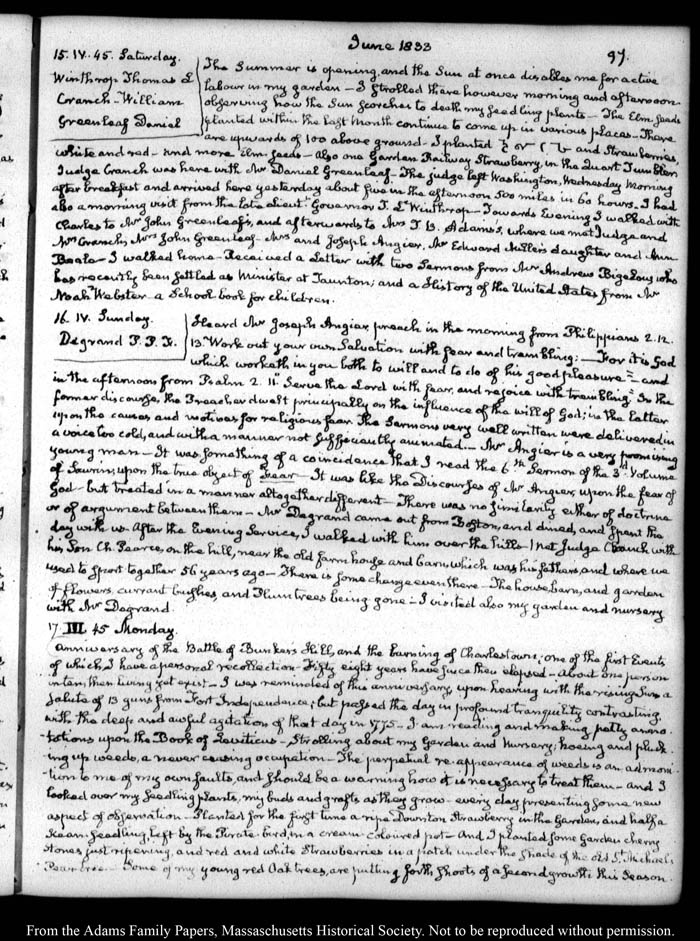 June 1833
97.
15. IV. 45. Saturday.
Winthrop Thomas L
Cranch - William
Greenleaf Daniel
The Summer is opening, and the Sun at once disables me for active
labour in my garden — I strolled there however morning and afternoon
observing how the Sun scorches to death my seedling plants — The Elm, seeds
planted within the last month continue to come up in various places — There
are upwards of 100 above ground — I planted and Strawberries,
white and red — and more Elm seeds — Also one Garden Railway Strawberry, in the Quart Tumbler
Judge Cranch was here with Mr Daniel Greenleaf — The judge left Washington, Wednesday Morning
after breakfast and arrived here yesterday about five in the afternoon 500 miles in 60 hours. I had
also a morning visit from the late Lieutt Governor T. L. Winthrop — Towards Evening I walked with
Charles to Mr John Greenleaf's, and afterwards to Mrs T. B. Adams's, where we met Judge and
Mrs Cranch, Mrs John Greenleaf — Mrs and Joseph Angier, Mr Edward Miller's daughter and Ann
Beale — I walked home — Received a Letter with two Sermons from Mr Andrew Bigelow, who
has recently been settled as Minister at Taunton; and a History of the United States from Mr
Noah Webster a School book for children.
16. IV. Sunday.
Degrand P. P. F.
Heard Mr Joseph Angier, preach in the morning from Philippians 2. 12.
13. "Work out your own Salvation with fear and trembling; — For it is God
which worketh in you both to will and to do of his good pleasure" — and
in the afternoon from Psalm 2. 11. "Serve the Lord with fear, and rejoice with trembling." In the
former discourse, the Preacher dwelt principally on the influence of the will of God; in the latter
upon the causes and motives for religious fear. The Sermons very well written were delivered in
a voice too cold, and with a manner not sufficiently animated. — Mr Angier is a very promising
young man — It was something of a coincidence that I read the 6th Sermon of the 3d Volume
of Saurin, upon the true object of Fear — It was like the Discourses of Mr Angier, upon the fear of
God — but treated in a manner altogether different — There was no similarity either of doctrine
or of argument between them — Mr Degrand came out from Boston, and dined, and spent the
day with us. After the Evening Service, I walked with him over the hills — I met Judge Cranch with
his Son Ch. Pearce, on the hill, near the old farm house and barn, which was his father's, and where we
used to sport together 56 years ago — There is some change even there — The house, barn, and garden
of flowers, currant bushes, and Plum trees being gone — I visited also my garden and nursery
with Mr Degrand.
17. III. 45 Monday.
Anniversary of the Battle of Bunker's Hill, and the burning of Charlestown; one of the first Events
of which, I have a personal recollection — Fifty eight years have since then elapsed — about one person
in ten, then living yet exist — I was reminded of this anniversary upon hearing with the rising Sun a
salute of 13 guns from Fort Independence; but passed the day in profound tranquility contrasting
with the deep and awful agitation of that day in 1775 — I am reading and making petty anno-
tations upon the Book of Leviticus — Strolling about my Garden and Nursery, hoeing and pluck-
ing up weeds, a never ceasing occupation — The perpetual re-appearance of weeds is an admoni-
tion to me of my own faults, and should be a warning how it is necessary to treat them — and I
looked over my seedling plants, my buds and grafts as they grow — every day presenting some new
aspect of observation — Planted for the first time a ripe Downton Strawberry in the Garden, and half a
seedling, left by the Pirate-bird, in a cream-coloured pot — And I planted some Garden cherry
stones just ripening, and red and white Strawberries in a patch under the shade of the old St Michael's
Pear tree — Some of my young red Oak trees, are putting forth shoots of a second growth this Season.
From the Adams Family Papers, Massachusetts Historical Society. Not to be reproduced without permission.